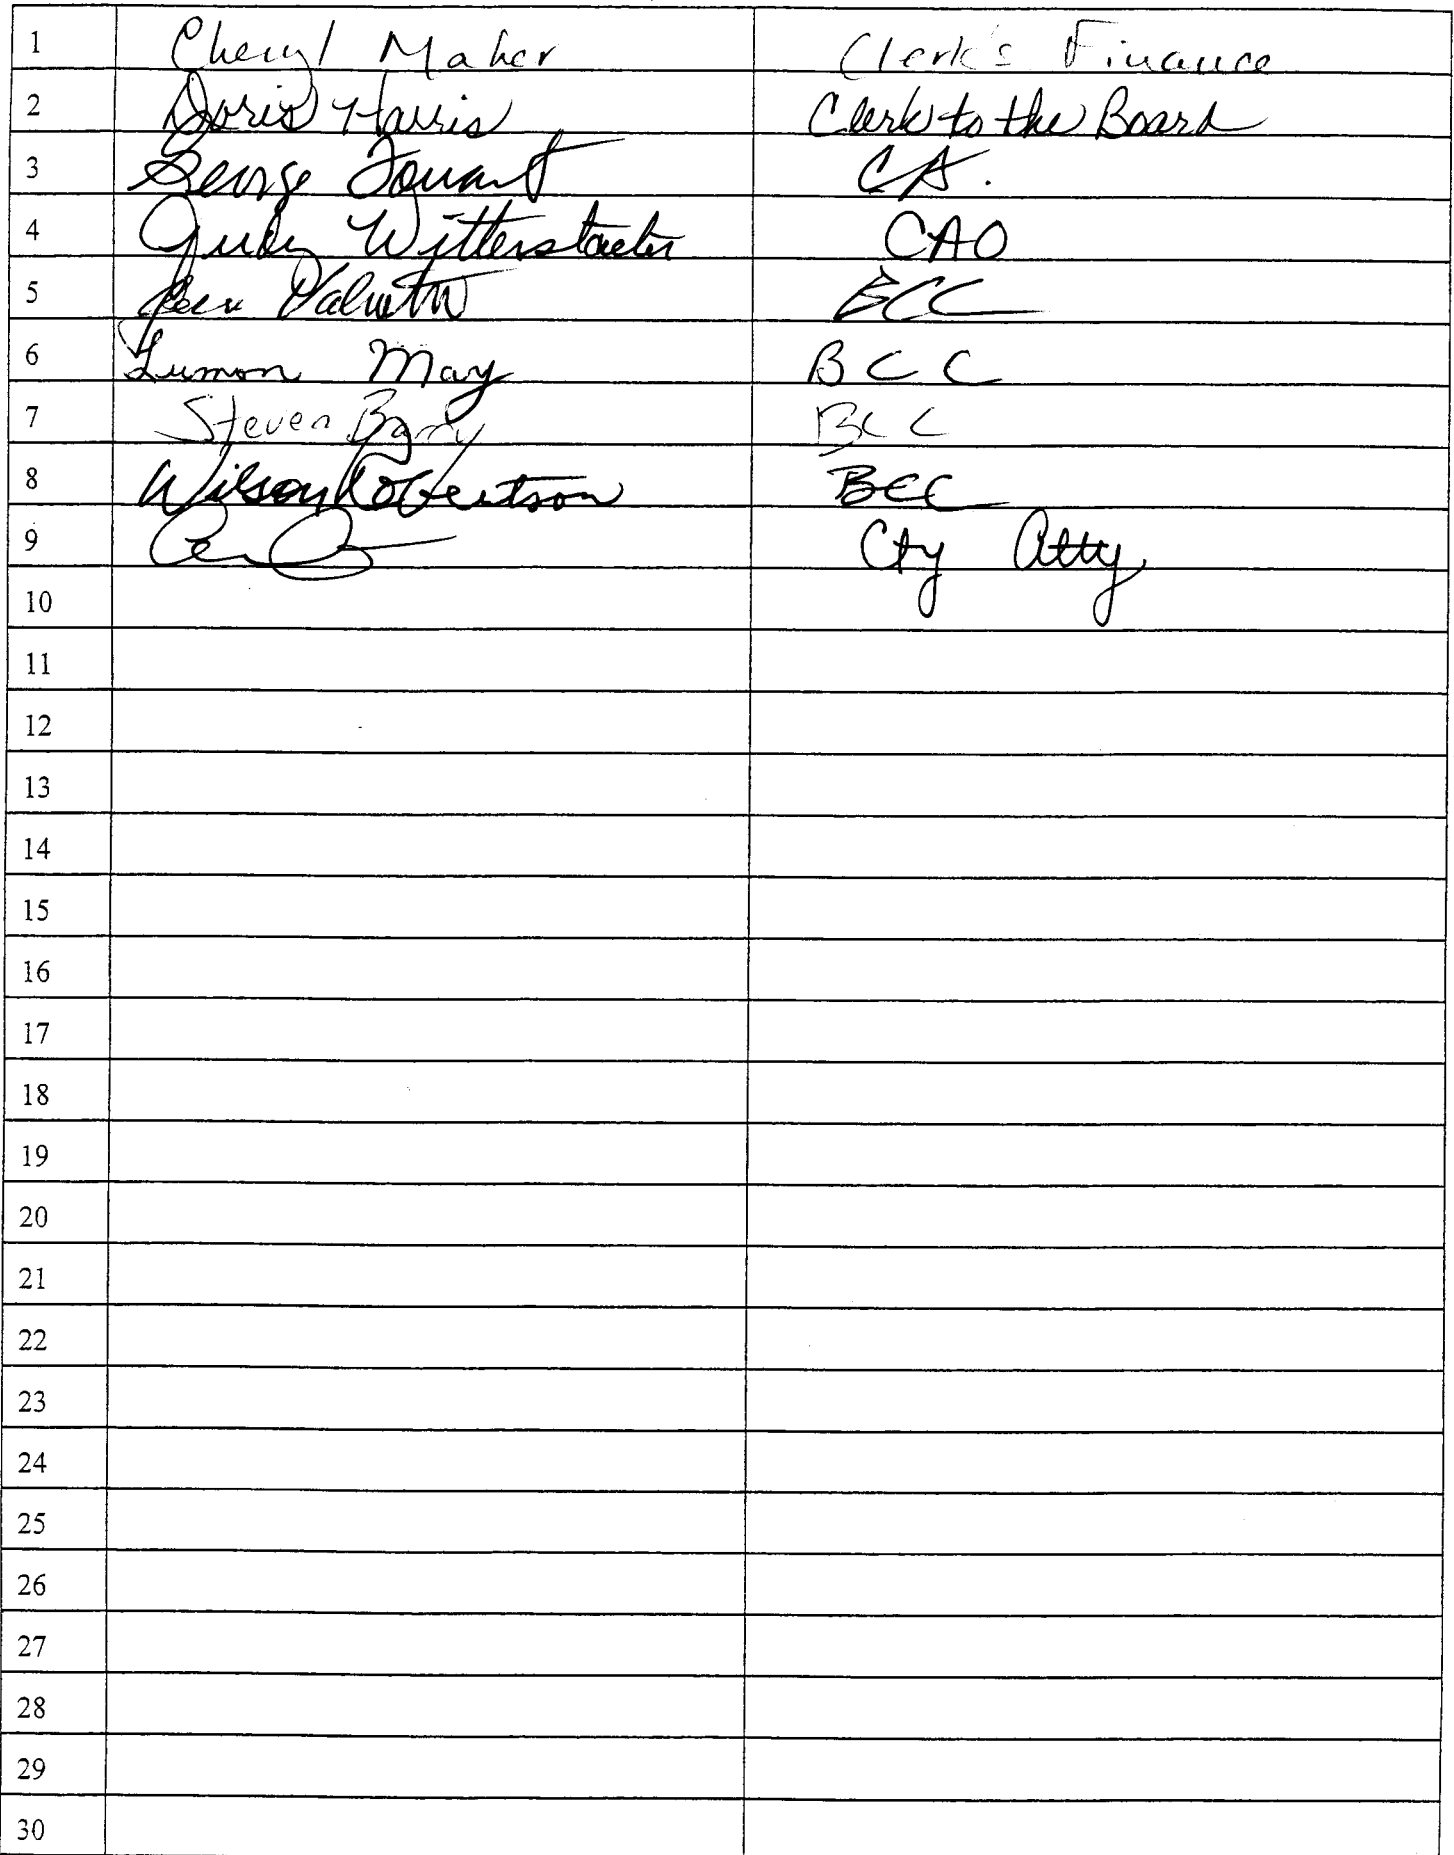 1 Cheryl Maher Clerk's Finance
2 Doris Harris Clerk to the Board
3 George Touart CA.
4 Judy Witterstaeter CAO
5 Gene Valentino BCC
6 Lumon May BCC
7 Steven Barry BCC
8 Wilson Robertson BCC
9 Cty Atty
10
11
12
13
14
15
16
17
18
19
20
21
22
23
24
25
26
27
28
29
30